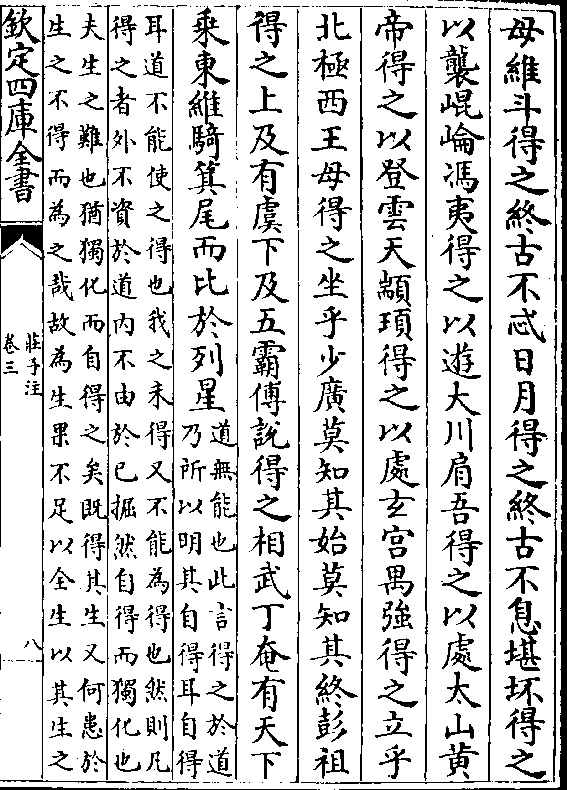 母維斗得之終古不忒日月得之終古不息堪坏得之
以襲崐崘馮夷得之以遊大川肩吾得之以處太山黄
帝得之以登雲天顓頊得之以處玄宫禺強得之立乎
北極西王母得之坐乎少廣莫知其始莫知其終彭祖
得之上及有虞下及五霸傅説得之相武丁奄有天下
乗東維騎箕尾而比於列星
道無能也此言得之於道
乃所以明其自得耳自得
耳道不能使之得也我之未得又不能為得也然則凡
得之者外不資於道内不由於已掘然自得而獨化也
夫生之難也猶獨化而自得之矣既得其生又何患於
生之不得而為之哉故為生果不足以全生以其生之
欽定四庫全書
莊子注
卷三
八